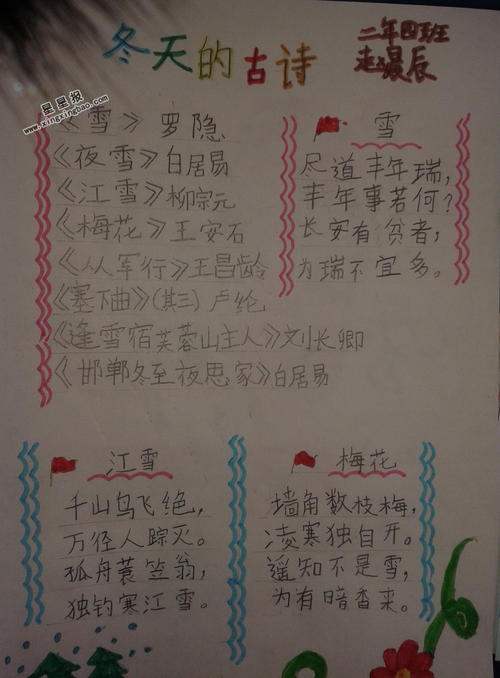 冬天的古诗
二年四班
赵晨辰
星星报
www.xingxingbao.com
《雪》罗隐
《夜雪》白居易
《江雪》柳宗元
《梅花》王安石
《从军行》王昌龄
《塞下曲》(其三)卢纶
《逢雪宿芙蓉山主人》刘长卿
《邯郸冬至夜思家》白居易
雪
尽道丰年瑞,
丰年事若何?
长安有贫者,
为瑞不宜多。
江雪
千山鸟飞绝,
万径人踪灭。
孤舟蓑笠翁,
独钓寒江雪。
梅花
墙角数枝梅,
凌寒独自开。
遥知不是雪,
为有暗香来。